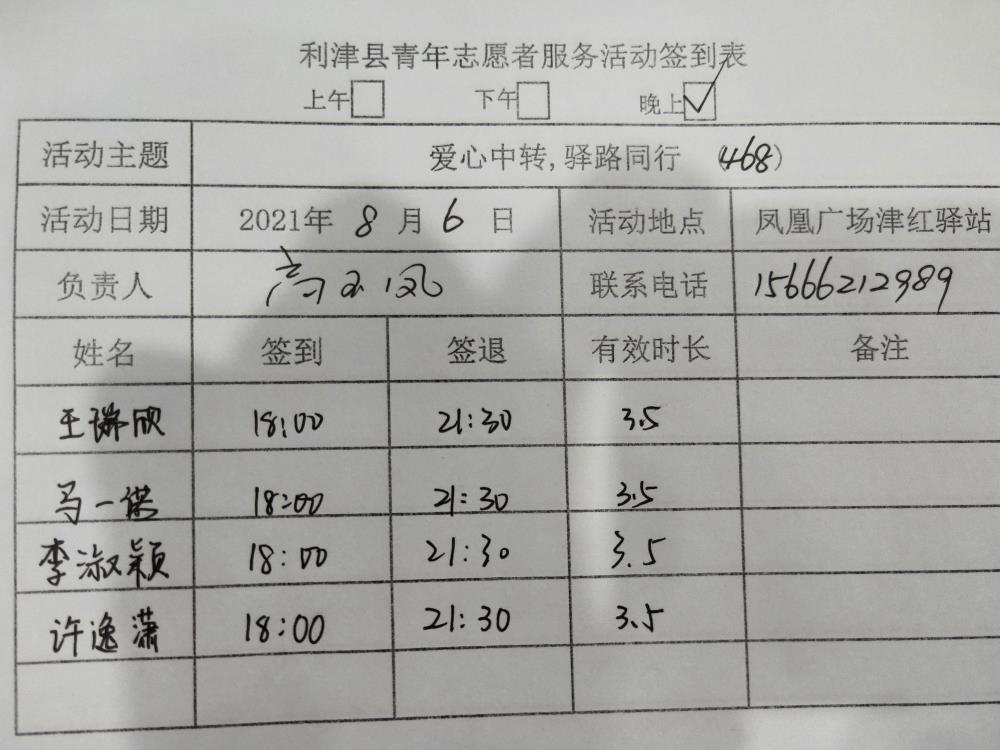 利津县青年志愿者服务活动签到表
上午□ 下午□ 晚上☑
活动主题 爱心中转,驿路同行 (468)
活动日期 2021年 8 月 6 日 活动地点 凤凰广场津红驿站
负责人 高玉凤 联系电话 15666212989
姓名 签到 签退 有效时长 备注
王瑞欣 18:00 21:30 3.5
马一诺 18:00 21:30 3.5
李淑颖 18:00 21:30 3.5
许逸潇 18:00 21:30 3.5